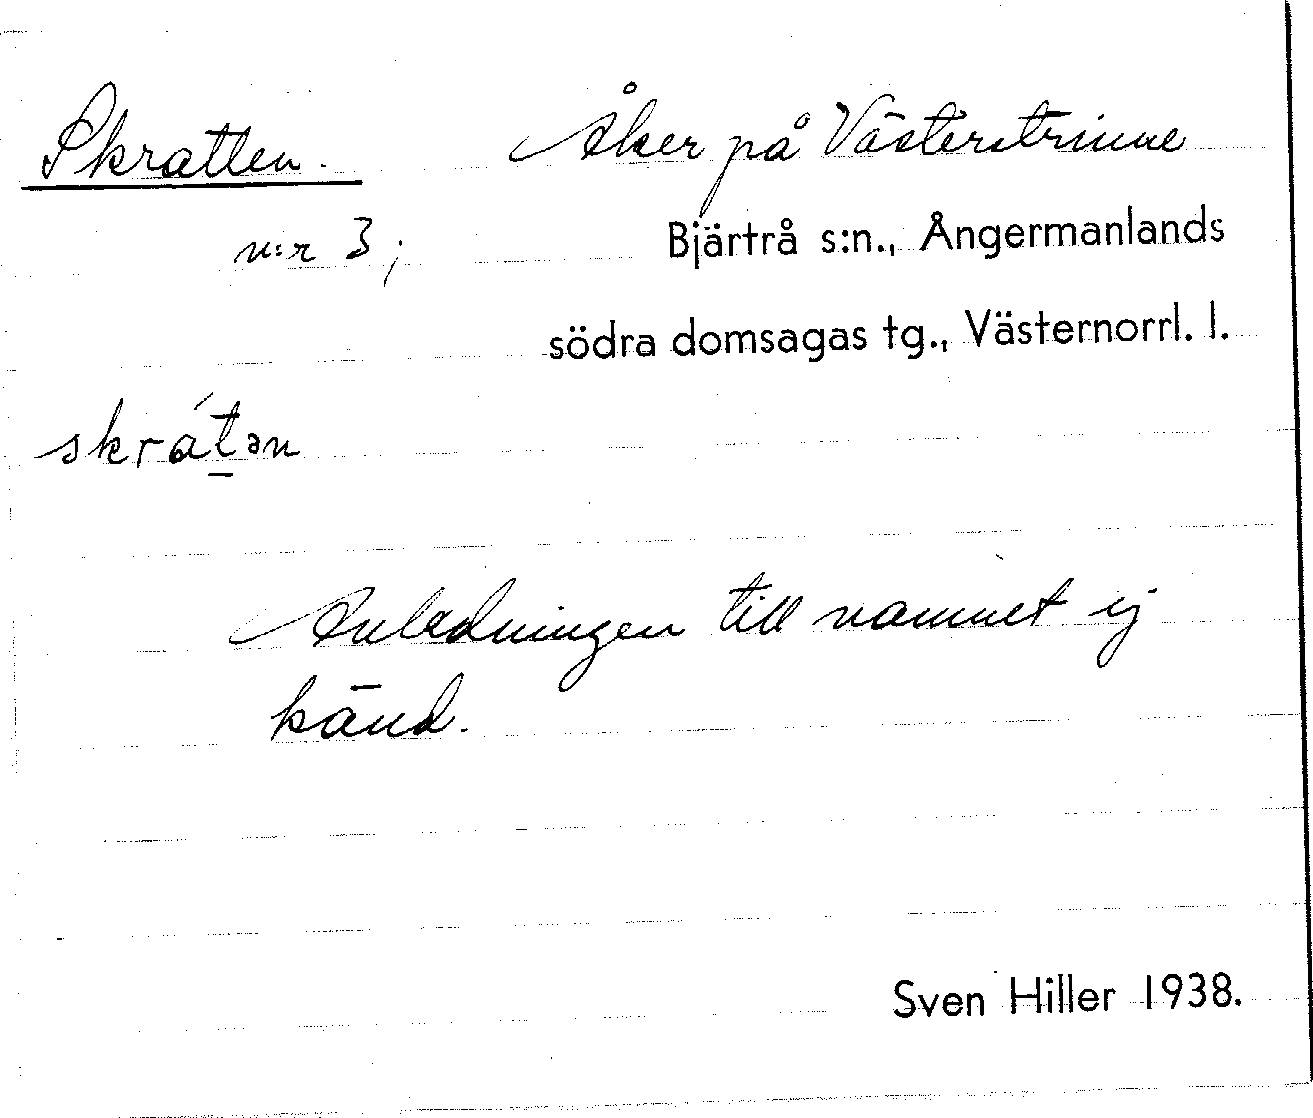 Skratten. Åker på Västerstrinne
n:r 3; Bjärtrå s:n., Ångermanlands
södra domsagas tg., Västernorrl. l.
skrát̲ən
Anledningen till namnet ej
känd.
Sven Hiller 1938.